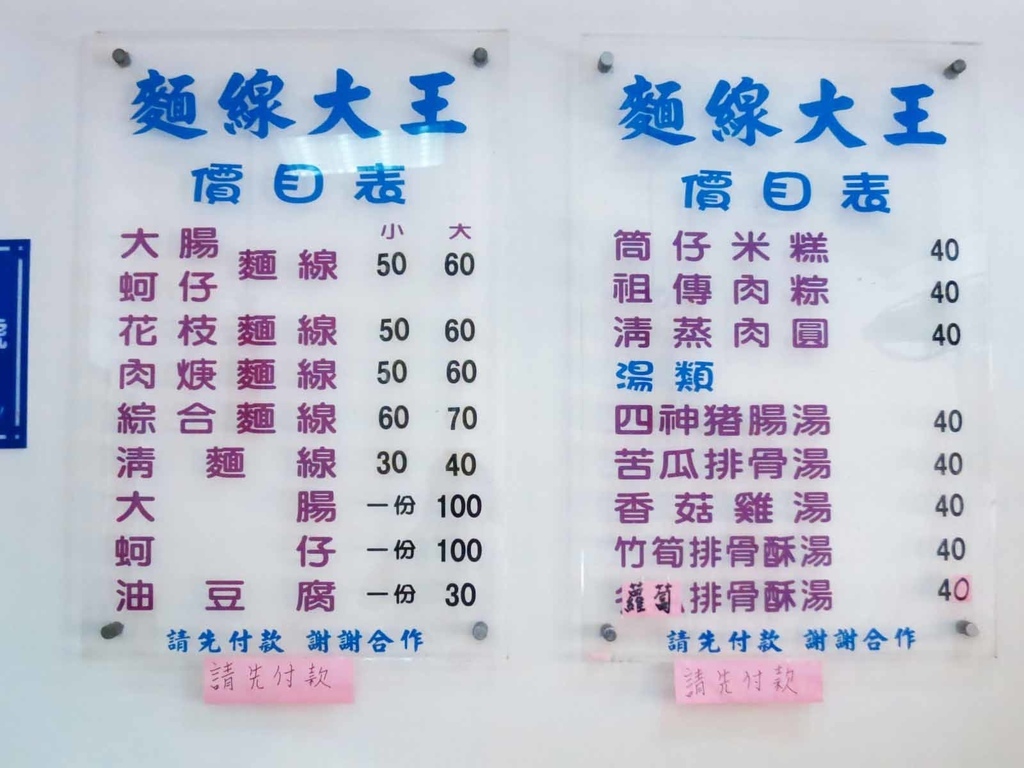 麵線大王
價目表
小 大
大腸
蚵仔 麵線 50 60
花枝麵線 50 60
肉焿麵線 50 60
綜合麵線 60 70
清麵線 30 40
大腸 一份 100
蚵仔 一份 100
油豆腐 一份 30
請先付款 謝謝合作
請先付款
麵線大王
價目表
筒仔米糕 40
祖傳肉粽 40
清蒸肉圓 40
湯類
四神豬腸湯 40
苦瓜排骨湯 40
香菇雞湯 40
竹筍排骨酥湯 40
蘿蔔排骨酥湯 40
請先付款 謝謝合作
請先付款